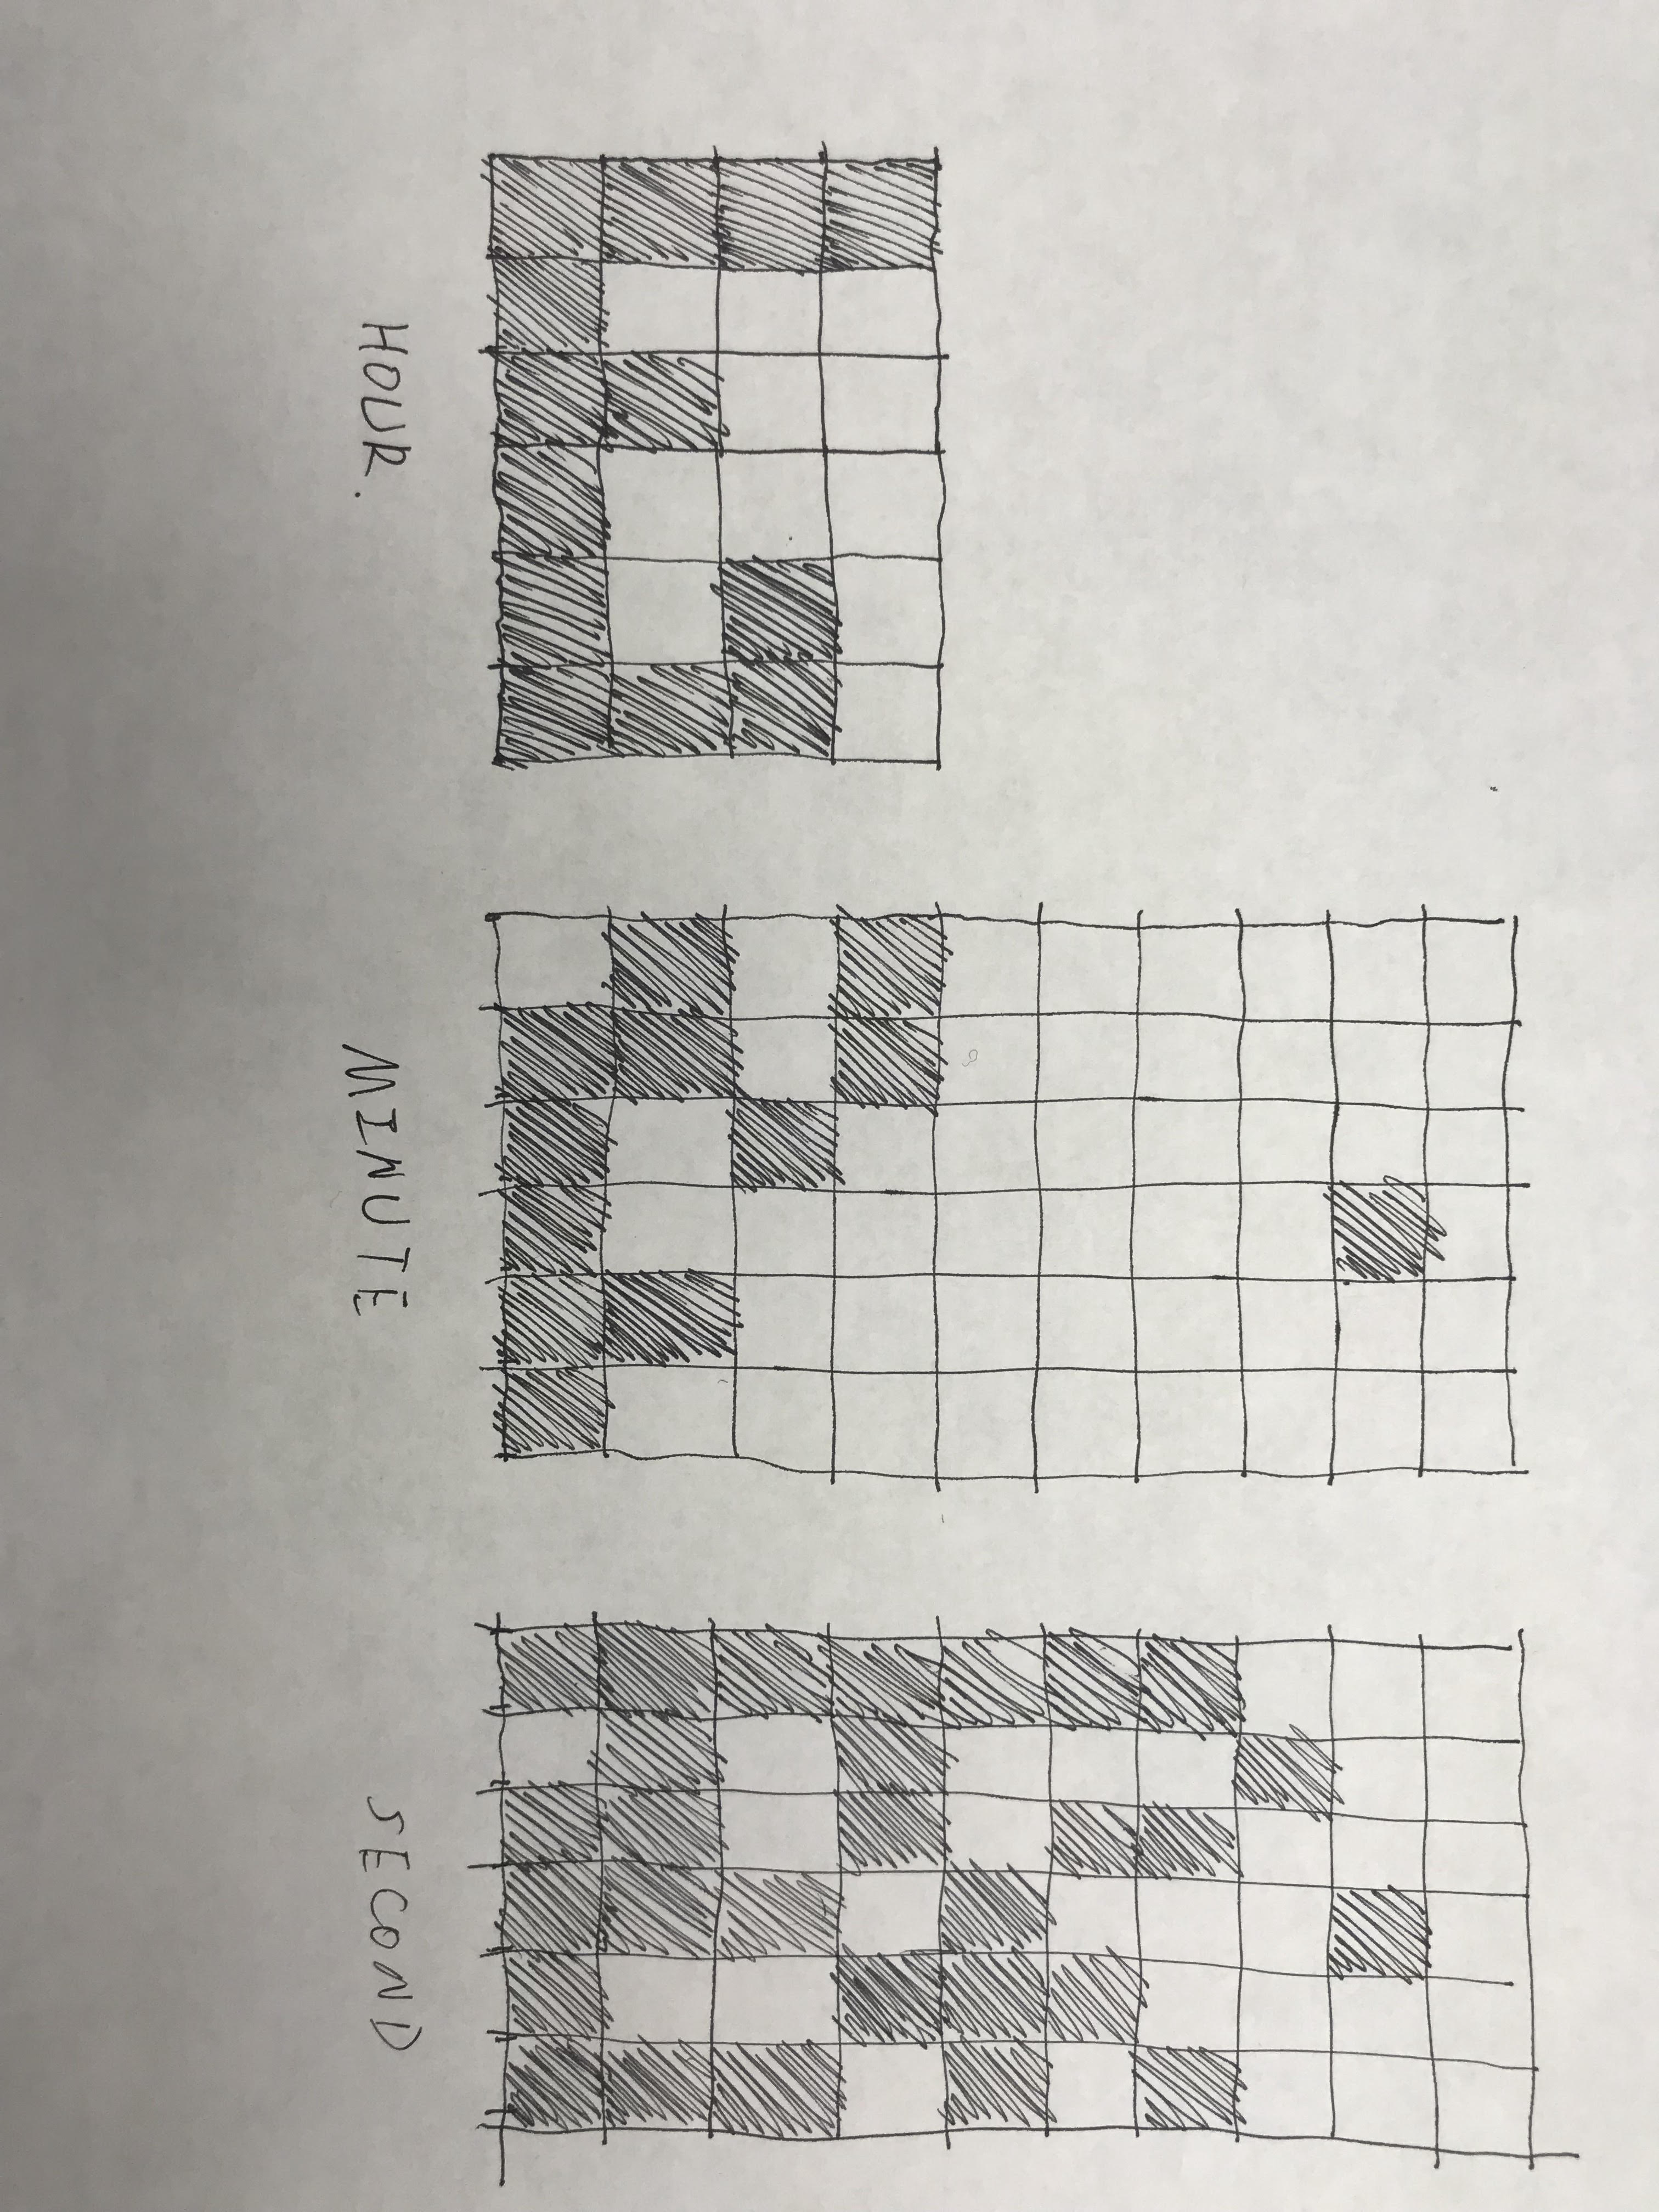 HOUR.
MINUTE
SECOND